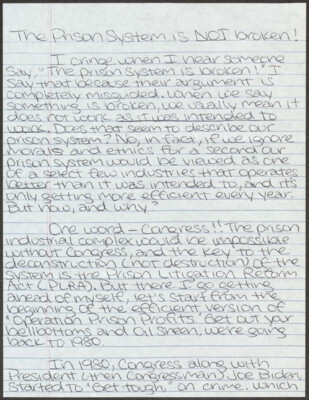 The Prison System is NOT broken!
I cringe when I hear someone
say, "The prison system is broken!" I
say that because their argument is
completely misguided. When we say
something is broken, we usually mean it
does not work as it was intended to
work. Does that seem to describe our
prison system? No, in fact, if we ignore
morals and ethics for a second our
prison system would be viewed as one
of a select few industries that operates
better than it was intended to, and it's
only getting more efficient every year.
But how, and why?
One word - Congress!! The prison
industrial complex would be impossible
without Congress, and the key to the
deconstruction (not destruction) of the
system is the Prison Litigation Reform
Act (PLRA). But there I go getting
ahead of myself, let's start from the
beginning of the efficient version of
"Operation Prison Profits." Get out your
bell bottoms and Oil Sheen, we're going
back to 1980.
In 1980, Congress along with
President (then Congressman) Joe Biden,
started to "Get tough," on crime. Which